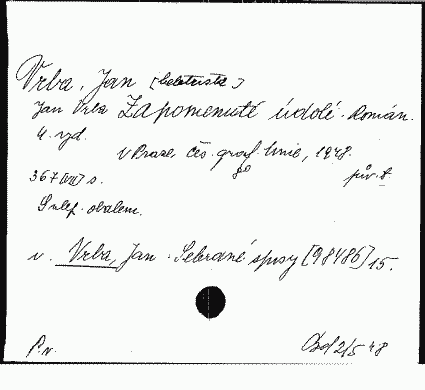 Vrba, Jan [beletrista]
Jan Vrba Zapomenuté údolí. Román.
4. vyd.
V Praze, Čes. graf. Unie, 1948.
8° pův.
367 s.
S ilep. obalem.
v. Vrba, Jan. Sebrané spisy [98486] 15.
P.v. 2/5 48